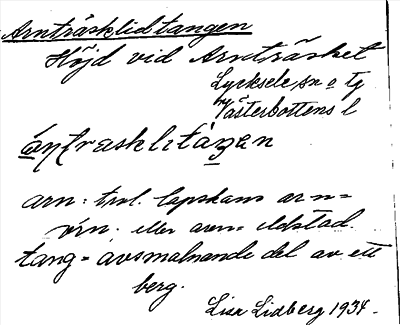 Arnträsklidtangen
Höjd vid Arnträsket
Lycksele sn o ty
Västerbottens l
arn: trol. lapskans arn=
vin. eller aren= eldstad.
tang= avsmalnande del av ett
berg.
Lisa Lidberg 1934.